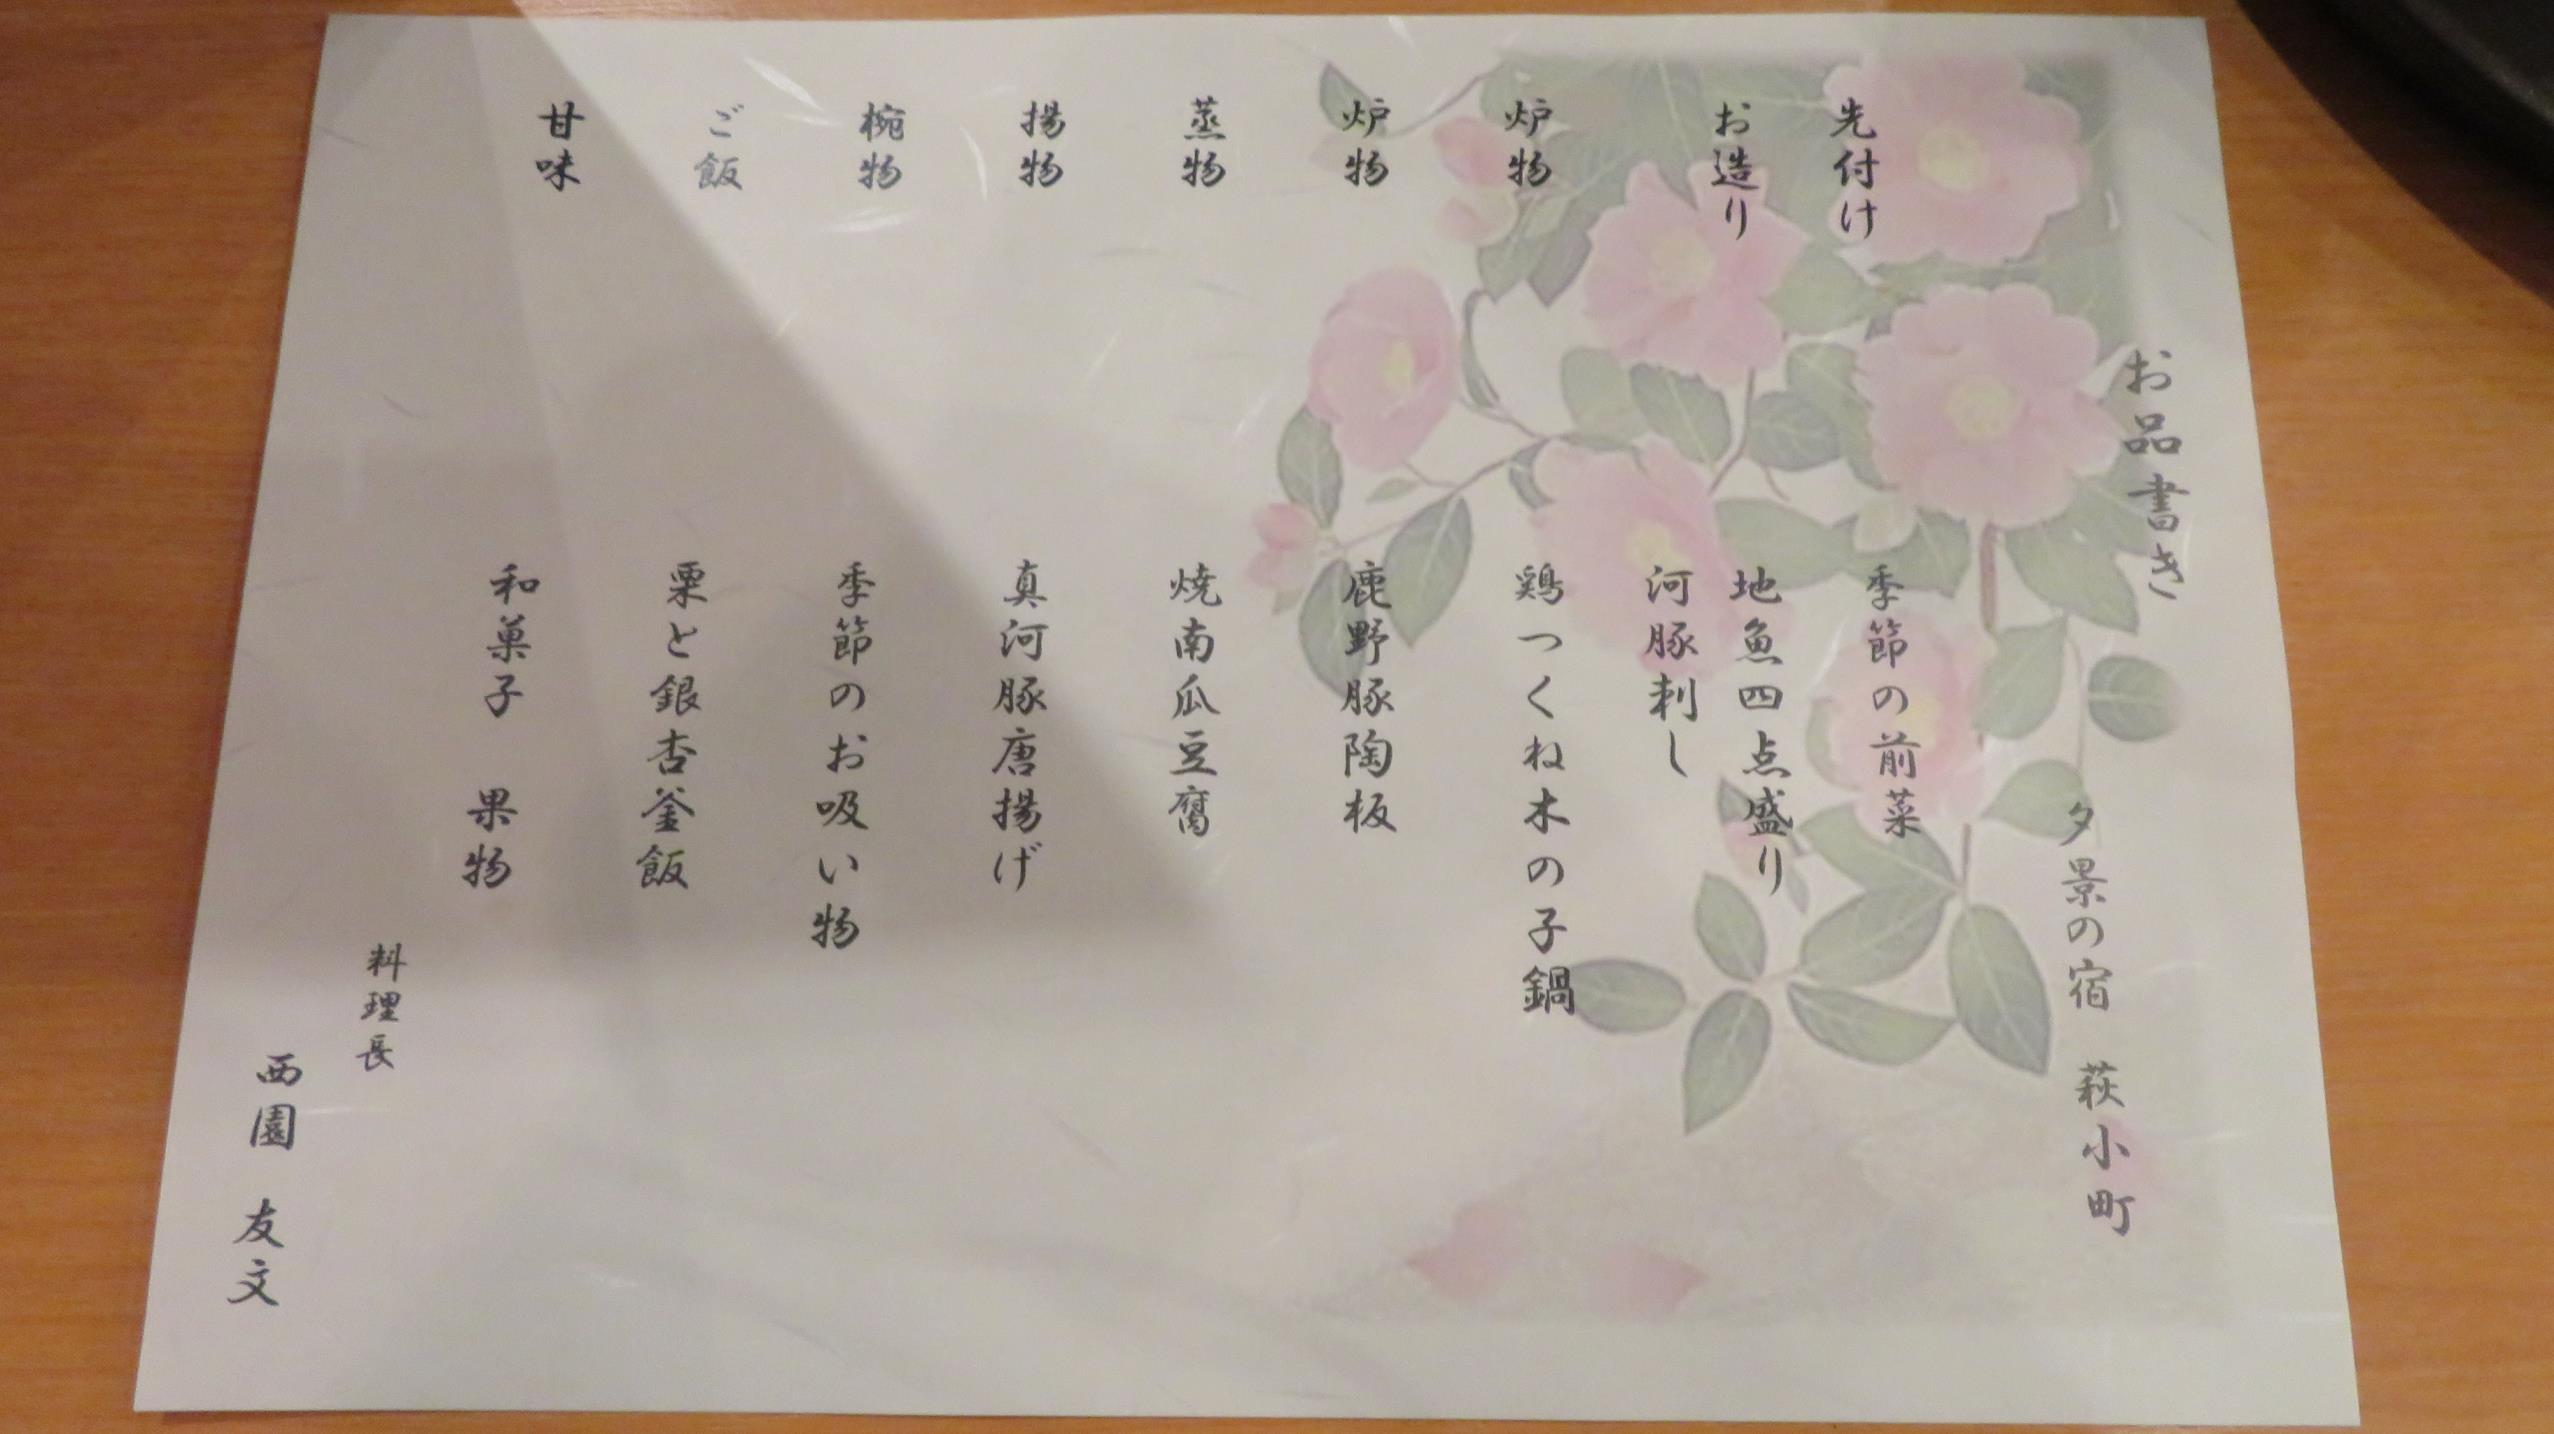 お品書き
夕景の宿　萩小町
先付け　季節の前菜
お造り　地魚四点盛り
河豚刺し
炉物　鶏つくね木の子鍋
炉物　鹿野豚陶板
蒸物　焼南瓜豆腐
揚物　真河豚唐揚げ
椀物　季節のお吸い物
ご飯　栗と銀杏釜飯
甘味　和菓子　果物
料理長
西園　友文